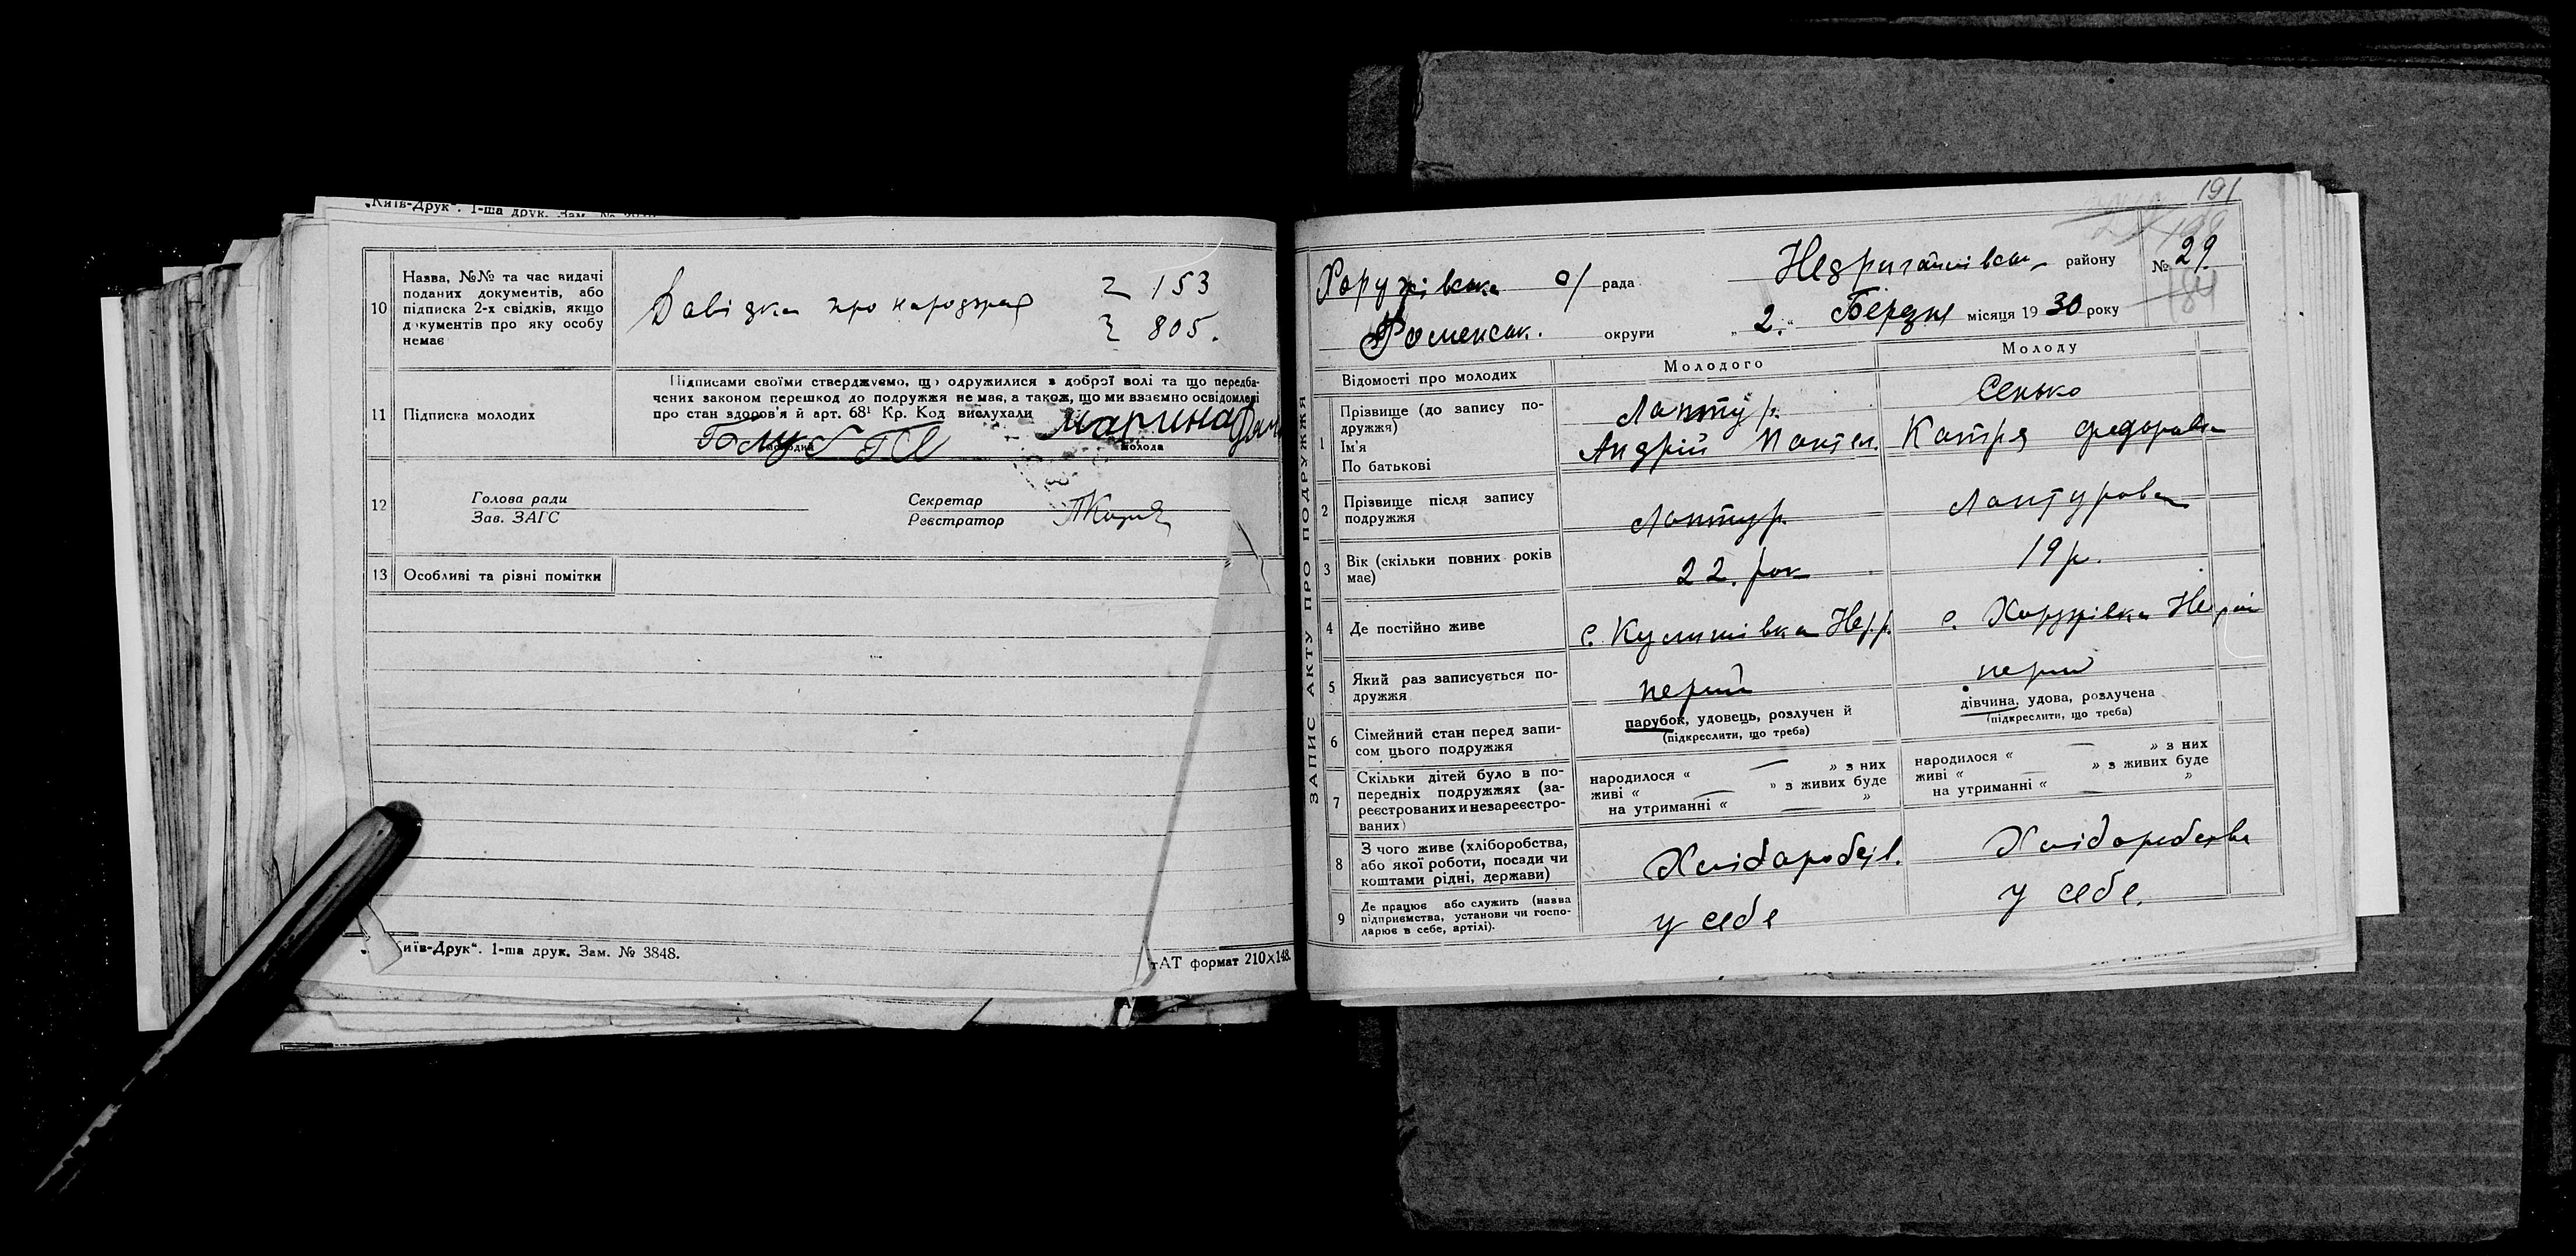 „Київ-Друк“. 1-ша друк. Зам. №
10 Назва, №№ та час видачі поданих документів, або підписка 2-х свідків, якщо документів про яку особу немає
Довідка про народження
153
805.
11 Підписка молодих
Підписами своїми стверджуємо, що одружилися в доброї волі та що передба-
чених законом перешкод до подружжя не має, а також, що ми взаємно освідомлені
про стан здоров'я й арт. 68¹ Кр. Код вислухали
Марина
молода
12 Голова ради
Зав. ЗАГС
Секретар
Реєстратор
13 Особливі та різні помітки
иїв-Друк“. 1-ша друк. Зам. № 3848.
тАТ формат 210×148.
191
Хоружівська с/ рада Недригайлівськ району № 29
Роменськ. округи „2.“ Березня місяця 1930 року
184
ЗАПИС АКТУ ПРО ПОДРУЖЖЯ
Відомості про молодих
Молодого
Молоду
1 Прізвище (до запису по-
дружжя)
Ім'я
По батькові
Лантур
Андрій Пантел.
Сенько
Катря Федоровна
2 Прізвище після запису
подружжя
Лантур
Лантурова
3 Вік (скільки повних років
має)
22. рок
19 р.
4 Де постійно живе
с. Хоружівка
5 Який раз записується по-
дружжя
перший
перший
6 Сімейний стан перед запи-
сом цього подружжя
парубок, удовець, розлучен й
(підкреслити, що треба)
дівчина, удова, розлучена
(підкреслити, що треба)
7 Скільки дітей було в по-
передніх подружжях (за-
реєстрованих и незареєстро-
ваних)
народилося « — » з них
живі « — » з живих буде
на утриманні « — »
народилося « — » з них
живі « — » з живих буде
на утриманні « »
8 З чого живе (хліборобства,
або якої роботи, посади чи
коштами рідні, держави)
Хліборобств.
Хліборобства
9 Де працює або служить (назва
підприємства, установи чи госпо-
дарює в себе, артілі).
у себе
у себе.